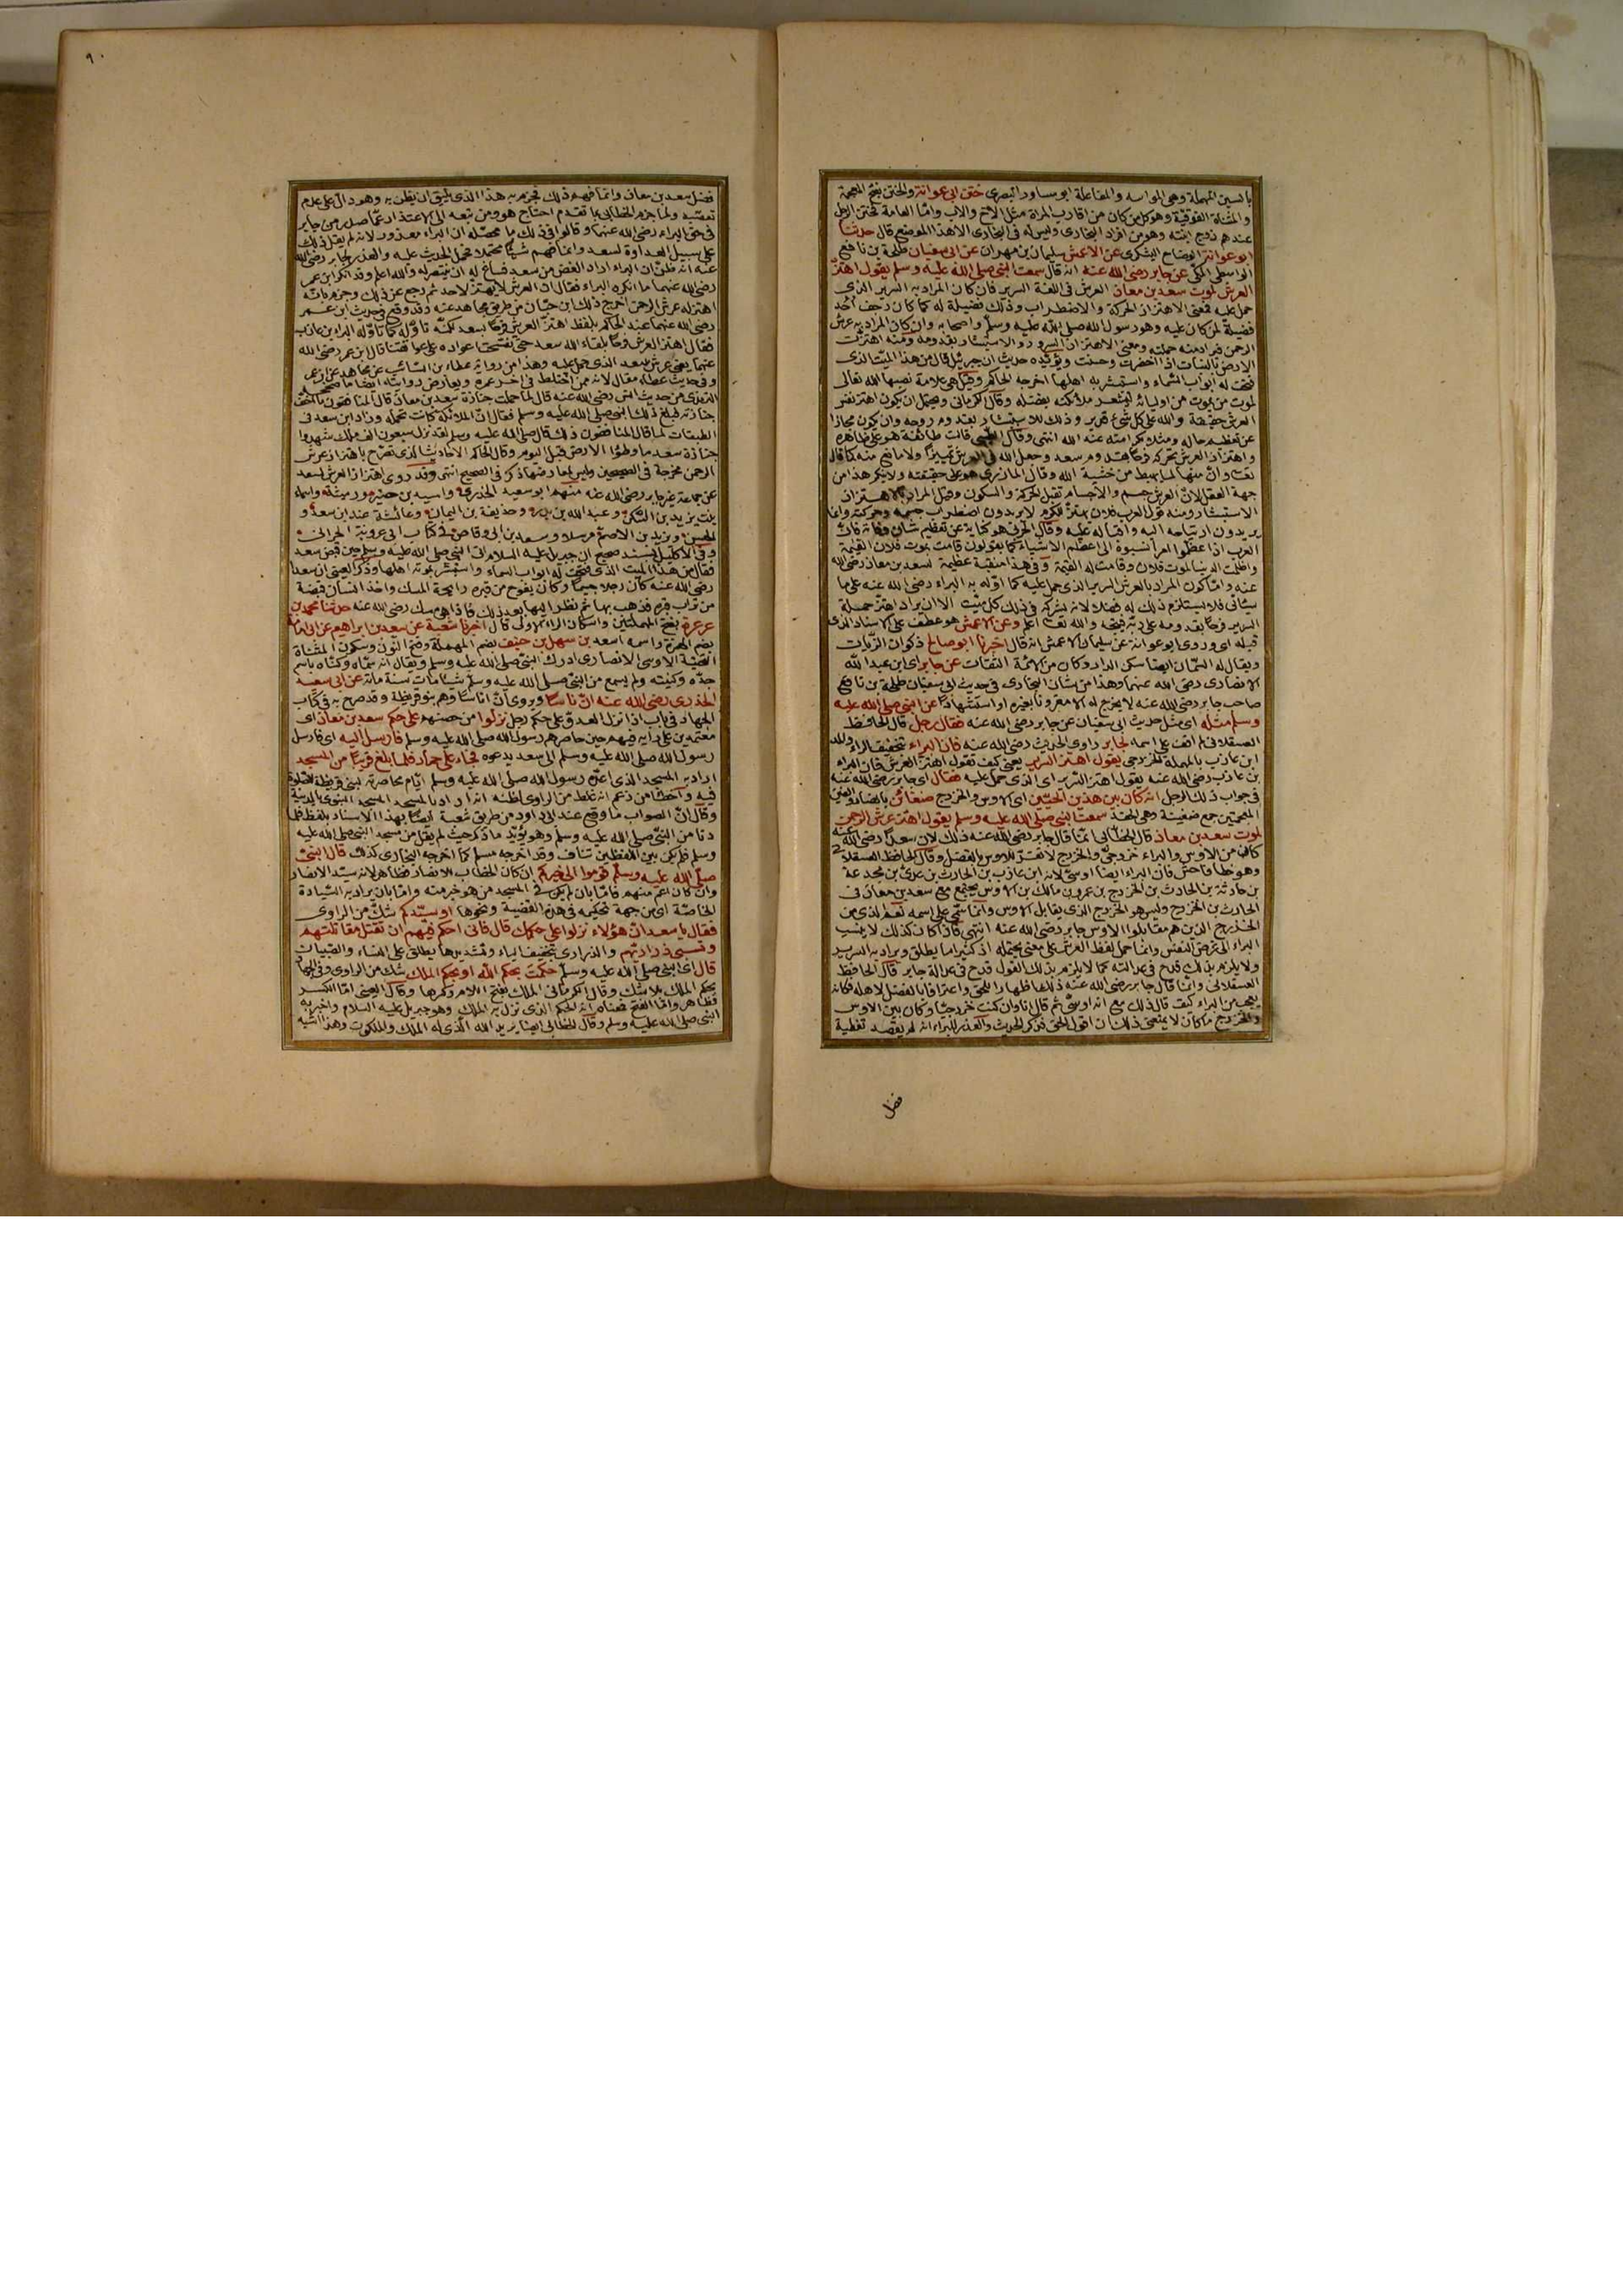 بالسين المهملة وهي المواسه والمفاعلة ابو مساور البصرى ختن ابى عوانة والختن بفتح المعجمة
والمثناة الفوقية وهو كل من كان من اقارب المراة مثل الاخ والاب واما العامة فختن الرجل
عندهم زوج ابنته وهو من افراد البخارى وليس له فى البخارى الا هذا الموضع قال حدثنا
ابو عوانة الوضاح اليشكرى عن الاعمش سليمان بن مهران عن ابى سفيان طلحة بن نافع
الواسطى المكى عن جابر رضى الله عنه انه قال سمعت النبى صلى الله عليه وسلم يقول اهتز
العرش لموت سعد بن معاذ العرش فى اللغة السرير فان كان المراد به السرير الذى
حمل عليه فمعنى الاهتزاز الحركة والاضطراب وذلك فضيلة له كما كان رجف احد
فضيلة لمن كان عليه وهو رسول الله صلى الله عليه وسلم واصحابه وان كان المراد به عرش
الرحمن فيراد منه حملته ومعنى الاهتزاز السرور والاستبشار بقدومه ومنه اهتزت
الارض بالنبات اذا اخضرت وحسنت ويؤيده حديث ان جبرئيل قال من هذا الميت الذى
فتحت له ابواب السماء واستبشر به اهلها اخرجه الحاكم وقيل هى علامة نصبها الله تعالى
لموت من يموت من اوليائه ليشعر ملائكته بفضله وقال الكرمانى ويحتمل ان يكون اهتزاز نفس
العرش حقيقة والله على كل شئ قدير وذلك للاستبشار بقدوم روحه وان يكون مجازا
واهتزاز العرش تحركه فرحا بقدوم سعد وجعل الله فى العرش تمييزا ولا مانع منه كما قال
تعالى وان منها لما يهبط من خشية الله وقال المازرى هو على حقيقته ولا ينكر هذا من
جهة العقل لان العرش جسم والاجسام تقبل الحركة والسكون وقيل المراد بالاهتزاز
الاستبشار ومنه قول العرب فلان يهتز للمكارم لا يريدون اضطراب جسمه وحركته وانما
يريدون ارتياحه اليه واقباله عليه وقال الحربى هو كناية عن تعظيم شان وفاته فان
العرب اذا عظموا امرا نسبوه الى اعظم الاشياء كما يقولون قامت بموت فلان القيمة
واظلمت الدنيا لموت فلان وقامت له القيمة وفى هذا منقبة عظيمة لسعد بن معاذ رضى الله
عنه واما كون المراد بالعرش السرير الذى حمل عليه كما اوله به البراء رضى الله عنه على ما
سيأتى فلا يستلزم ذلك له فضلا لانه يشركه فى ذلك كل ميت الا ان يراد اهتز حملة
السرير فرحا بقدومه على ربه فيتجه والله تعالى اعلم وعن الاعمش هو عطف على الاسناد الذى
قبله اى وروى ابو عوانة عن سليمان الاعمش انه قال اخبرنا ابو صالح ذكوان الزيات
ويقال له السمان ايضا سكن الدار وكان من الائمة الثقات عن جابر اى ابن عبد الله
الانصارى رضى الله عنهما وهذا من شان البخارى فى حديث ابى سفيان طلحة بن نافع
صاحب جابر رضى الله عنه لا يخرج له الا مقرونا بغيره او استشهادا عن النبى صلى الله عليه
وسلم مثله اى مثل حديث ابى سفيان عن جابر رضى الله عنه فقال رجل قال الحافظ
العسقلانى لم اقف على اسمه لجابر راوى الحديث رضى الله عنه فان البراء بتخفيف الراء والمد
ابن عازب بالمهملة الخزرجى يقول اهتز السرير يعنى كيف تقول اهتز العرش فان البراء
بن عازب رضى الله عنه يقول اهتز السرير اى الذى حمل عليه فقال اى جابر رضى الله عنه
فى جواب ذلك الرجل انه كان بين هذين الحيين اى الاوس والخزرج ضغائن بالضاد والغين
المعجمتين جمع ضغينة وهى الحقد سمعت النبى صلى الله عليه وسلم يقول اهتز عرش الرحمن
لموت سعد بن معاذ قال الخطابى انما قال جابر رضى الله عنه ذلك لان سعدا رضى الله عنه
كان من الاوس والبراء خزرجى والخزرج لا تقر للاوس بالفضل وقال الحافظ العسقلانى
وهو خطأ فاحش فان البراء ايضا اوسى لانه ابن عازب بن الحارث بن عدى بن مجدعة
بن حارثة بن الحارث بن الخزرج بن عمرو بن مالك بن الاوس يجتمع مع سعد بن معاذ فى
الحارث بن الخزرج وليس هو الخزرج الذى يقابل الاوس وانما سمى على اسمه نعم الذى من
الخزرج الذين هم مقابلوا الاوس جابر رضى الله عنه انتهى فاذا كان كذلك لا ينسب
البراء الى غرض النفس وانما حمل لفظ العرش على معنى يحتمله اذ كثيرا ما يطلق ويراد به السرير
ولا يلزم بذلك قدح فى عدالته كما لا يلزم بذلك القول قدح فى عدالة جابر قال الحافظ
العسقلانى وانما قال جابر رضى الله عنه ذلك اظهارا للحق واعترافا بالفضل لاهله فكانه
يعجب من البراء كيف قال ذلك مع انه اوسى ثم قال انا وان كنت خزرجيا وكان بين الاوس
والخزرج ما كان لا يمنعنى ذلك ان اقول الحق فذكر الحديث والعذر للبراء انه لم يقصد تغطية
فضل
٩٠
فضل سعد بن معاذ وانما فهم ذلك فجزم به هذا الذى يليق ان يظن به وهو دال على عدم
تعصبه ولما جزم الخطابى بما تقدم احتاج هو ومن تبعه الى الاعتذار عما صدر من جابر
فى حق البراء رضى الله عنهما وقالوا فى ذلك ما محصله ان البراء معذور لانه لم يقل ذلك
على سبيل العداوة لسعد وانما فهم شيئا محتملا فحمل الحديث عليه والعذر لجابر رضى الله
عنه انه ظن ان البراء اراد الغض من سعد فساغ له ان ينتصر له والله اعلم وقد انكر ابن عمر
رضى الله عنهما ما انكره البراء فقال ان العرش لا يهتز لاحد ثم رجع عن ذلك وجزم بانه
اهتز له عرش الرحمن اخرج ذلك ابن حبان من طريق مجاهد عنه وقد وقع فى حديث ابن عمر
رضى الله عنهما عند الحاكم بلفظ اهتز العرش فرحا بسعد لكنه تاوله كما تاوله البراء بن عازب
فقال اهتز العرش فرحا بلقاء الله سعد حتى تفسخت اعواده على عواتقنا قال ابن عمر رضى الله
عنهما يعنى عرش سعد الذى حمل عليه وهذا من رواية عطاء بن السائب عن مجاهد عن ابن عمر
وفى حديث عطاء مقال لانه ممن اختلط فى اخر عمره ويعارض روايته ايضا ما صححه
الترمذى من حديث انس رضى الله عنه قال لما حملت جنازة سعد بن معاذ قال المنافقون ما اخف
جنازته فبلغ ذلك النبى صلى الله عليه وسلم فقال ان الملائكة كانت تحمله وزاد ابن سعد فى
الطبقات لما قال المنافقون ذلك قال صلى الله عليه وسلم لقد نزل سبعون الف ملك شهدوا
جنازة سعد ما وطؤا الارض قبل اليوم وقال الحاكم الاحاديث التى تصرح باهتزاز عرش
الرحمن مخرجة فى الصحيحين وليس لمعارضها ذكر فى الصحيح انتهى وقد روى اهتزاز العرش لسعد
عن جماعة غير جابر رضى الله عنه منهم ابو سعيد الخدرى واسيد بن حضير ورميثة واسماء
بنت يزيد بن السكن وعبد الله بن بدر وحذيفة بن اليمان وعائشة عند ابن سعد و
الحسن ويزيد بن الاصم مرسلا وسعد بن ابى وقاص فى كتاب ابى عروبة الحرانى
وفى الاكليل بسند صحيح ان جبريل عليه السلام اتى النبى صلى الله عليه وسلم حين قبض سعد
فقال من هذا الميت الذى فتحت له ابواب السماء واستبشر بموته اهلها وذكر العينى ان سعدا
رضى الله عنه كان رجلا جسيما وكان يفوح من قبره رايحة المسك واخذ انسان قبضة
من تراب قبره فذهب بها ثم نظر اليها بعد ذلك فاذا هى مسك رضى الله عنه حدثنا محمد بن
عرعرة بفتح المهملتين واسكان الراء الاولى قال اخبرنا شعبة عن سعد بن ابراهيم عن ابى امامة
بضم الهمزة واسمه اسعد بن سهل بن حنيف بضم المهملة وفتح النون وسكون المثناة
التحتية الاوسى الانصارى ادرك النبى صلى الله عليه وسلم ويقال انه سماه وكناه باسم
جده وكنيته ولم يسمع من النبى صلى الله عليه وسلم شيئا مات سنة مائة عن ابى سعيد
الخدرى رضى الله عنه ان ناسا ويروى ان اناسا وهم بنو قريظة وقد صرح به فى كتاب
الجهاد فى باب اذا نزل العدو على حكم رجل نزلوا من حصنهم على حكم سعد بن معاذ اى
معتمدين على رأيه فيهم حين حاصرهم رسول الله صلى الله عليه وسلم فارسل اليه اى فارسل
رسول الله صلى الله عليه وسلم الى سعد يدعوه فجاء على حمار فلما بلغ قريبا من المسجد
اراد به المسجد الذى اعده رسول الله صلى الله عليه وسلم ايام محاصرته لبنى قريظة للصلوة
فيه واخطأ من زعم انه غلط من الراوى لظنه انه اراد بالمسجد المسجد النبوى بالمدينة
وقال ان الصواب ما وقع عند ابى داود من طريق شعبة ايضا بهذا الاسناد بلفظ فلما
دنا من النبى صلى الله عليه وسلم وهو يؤيد ما ذكر حيث لم يقل من مسجد النبى صلى الله عليه
وسلم فلم يكن بين اللفظين تناف وقد اخرجه مسلم كما اخرجه البخارى كذلك قال النبى
صلى الله عليه وسلم قوموا الى خيركم ان كان الخطاب للانصار فظاهر لانه سيد الانصار
وان كان اعم منهم فاما بان لم يكن فى المسجد من هو خير منه واما بان يراد به السيادة
الخاصة اى من جهة تحكيمه فى هذه القضية ونحوها او سيدكم شك من الراوى
فقال يا سعد ان هؤلاء نزلوا على حكمك قال فانى احكم فيهم ان تقتل مقاتلتهم
وتسبى ذراريهم والذرارى بتخفيف الياء وتشديدها يطلق على النساء والصبيان
قال اى النبى صلى الله عليه وسلم حكمت بحكم الله او بحكم الملك شك من الراوى وفى الجهاد
بحكم الملك بلا شك وقال الكرمانى الملك بفتح اللام وكسرها وقال العينى اما الكسر
فظاهر واما الفتح فمعناه انه الحكم الذى نزل به الملك وهو جبريل عليه السلام واخبر به
النبى صلى الله عليه وسلم وقال الخطابى ايضا يريد الله الذى له الملك والملكوت وهذا اشبه